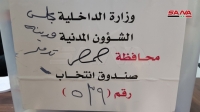 SANA
وزارة الداخلية
الشؤون المدنية
محافظة حمص
صندوق انتخاب
رقم (٥٣٩)